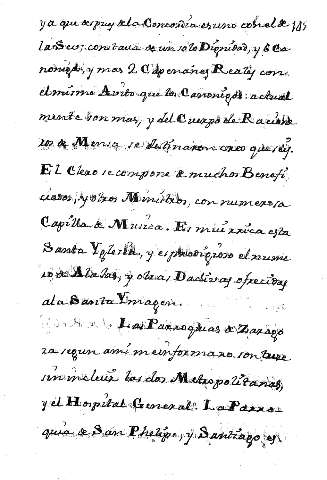 ya que despues de la Concordia es uno con el de
la Seo; constava de un solo Dignidad, y 8 Ca-
nonigos, y mas 2 Capellanes Reales con
el mismo Avito que los Canonigos: actual
mente son mas, y del Cuerpo de Racione
ros de Mensa se destinaron creo que seis.
El Clero se compone de muchos Benefi
ciados, y otros Ministros, con numerosa
Capilla de Musica. Es mui rica esta
Santa Yglesia, y es prodigioso el nume
ro de Alajas, y otras Dadivas ofrecidas
a la Santa Ymagen.
Las Parroquias de Zarago
za segun a mi me informaron son trece
sin incluir las dos Metropolitanas,
y el Hospital General. La Parro-
quia de San Phelipe, y Santiago es